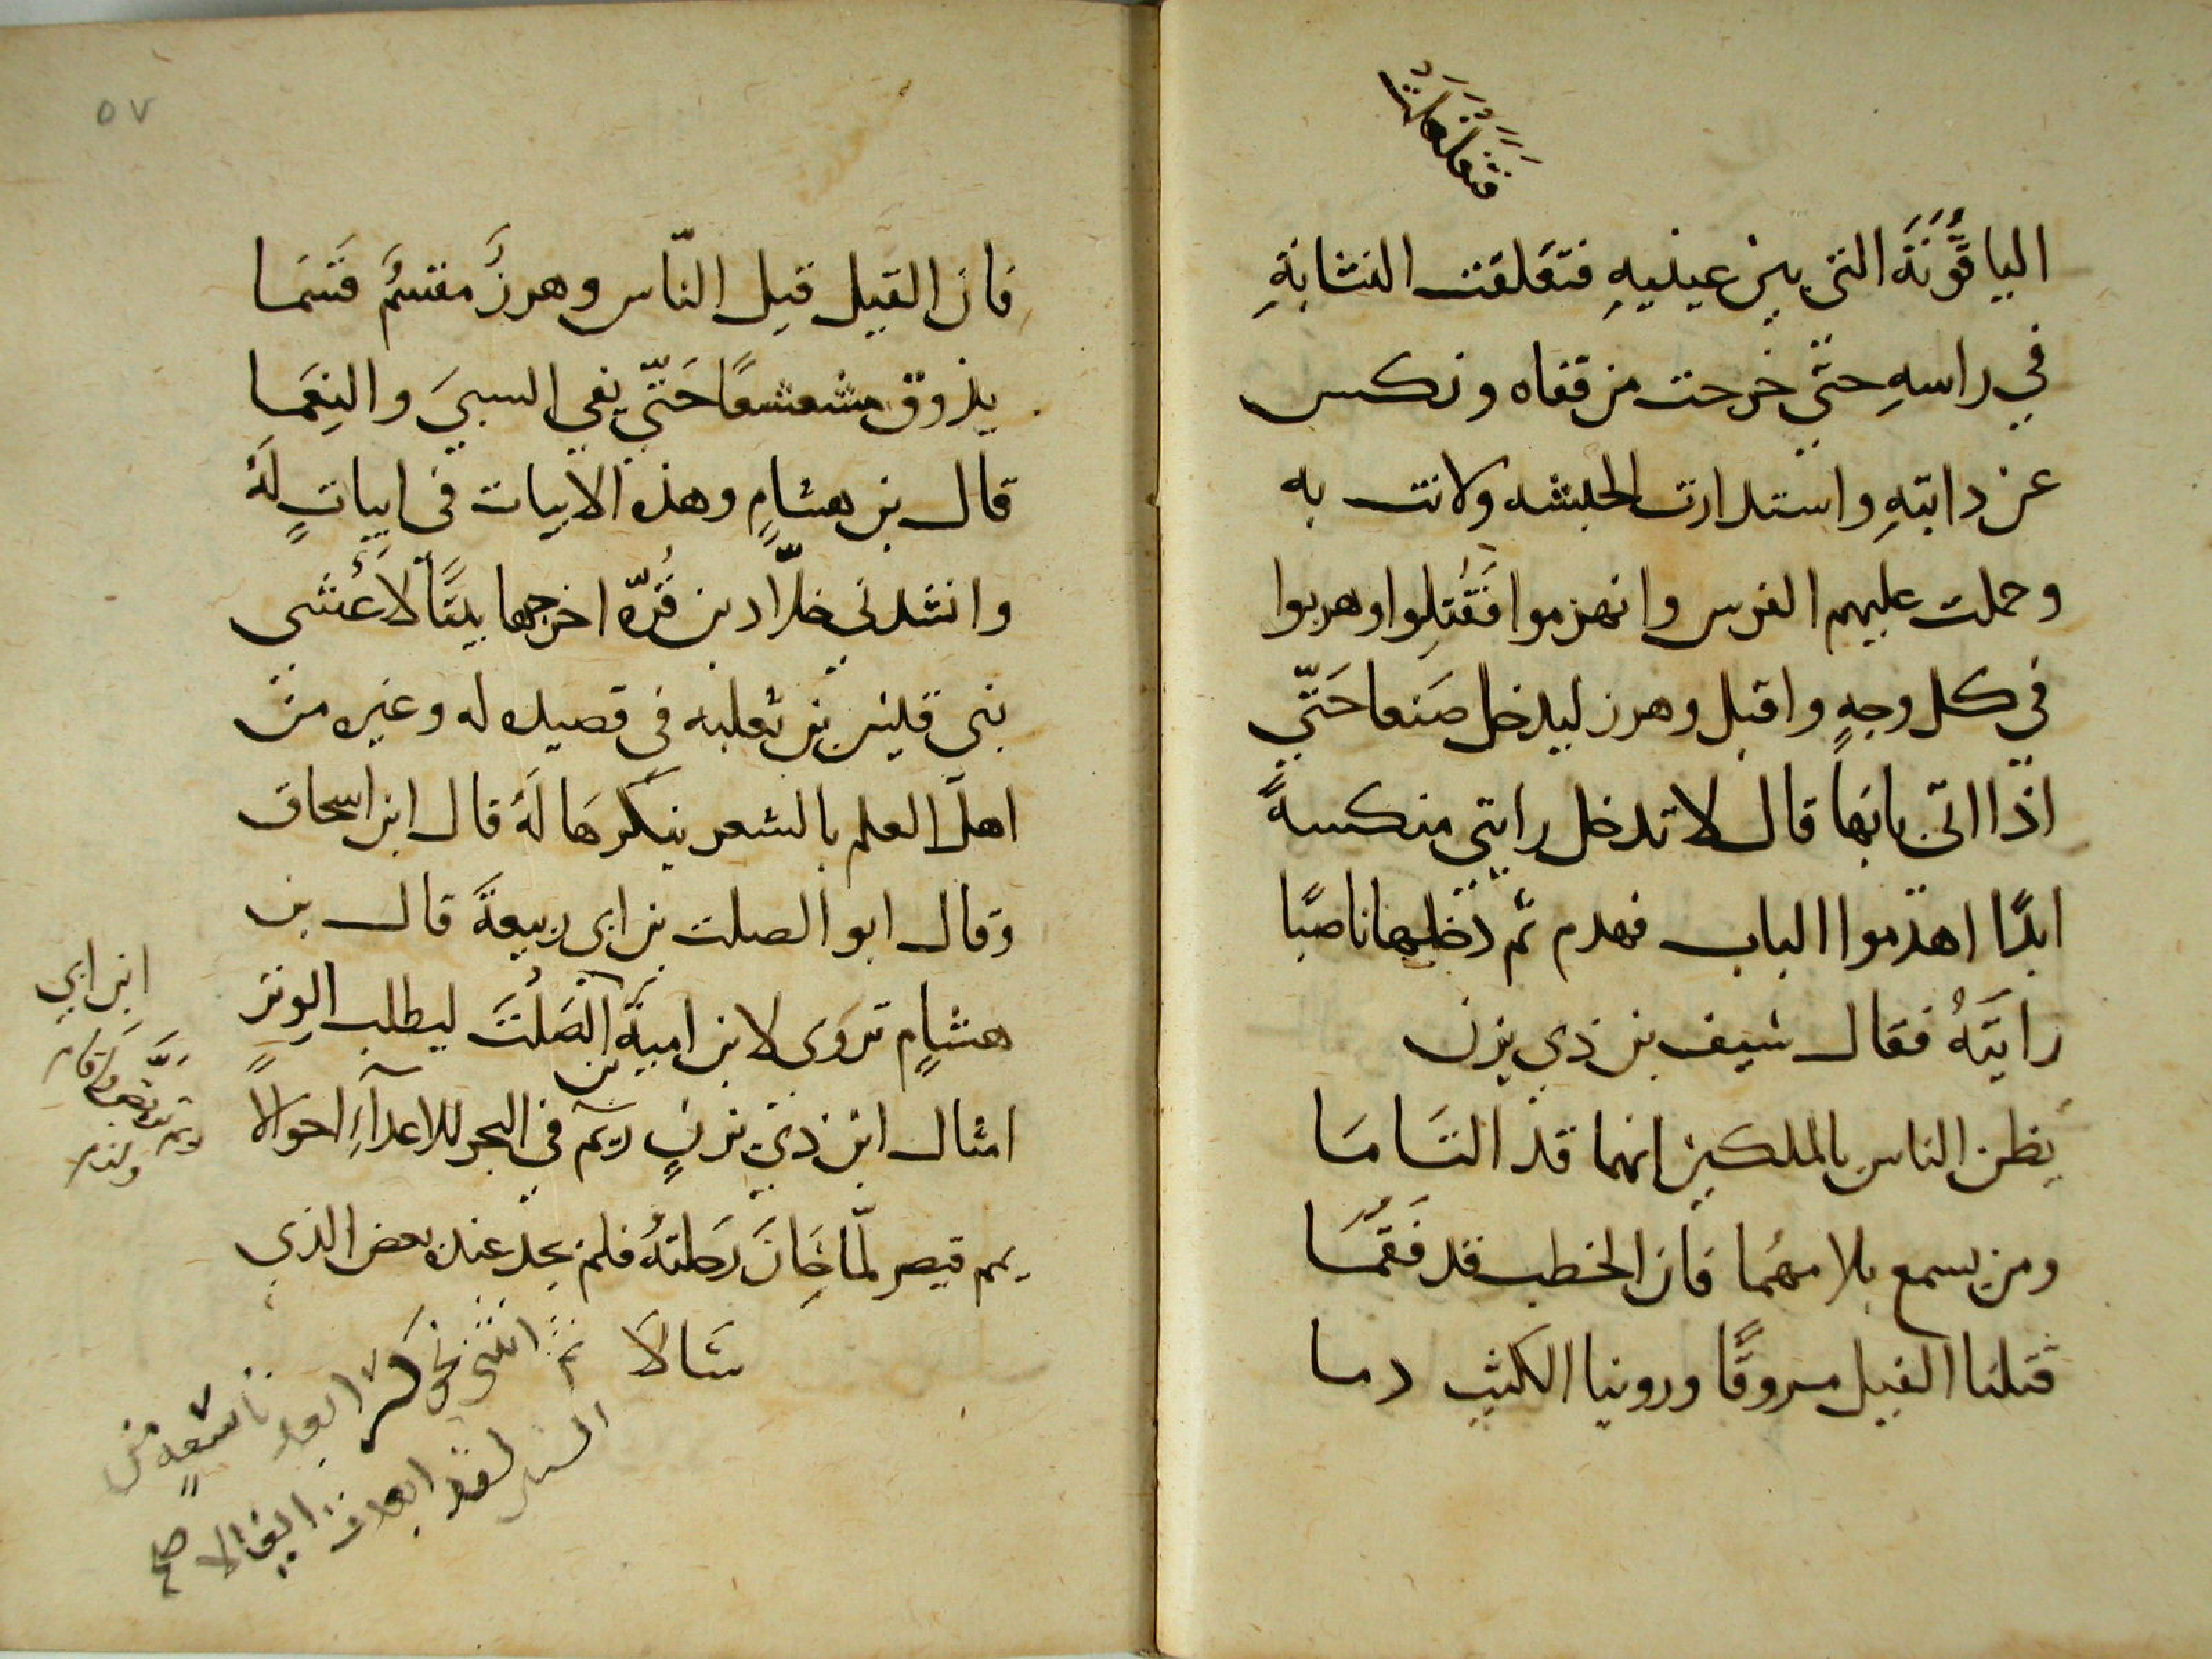 فتغلغلت
الياقُوتَةَ التي بين عينيهِ فتغلقت النشابةِ
في راسهِ حتّي خرجت من قفاه ونكس
عن دابتهِ واستدارت الحبشه ولاتت به
وحملت عليهم الفرس وانهزموا فَقُتِلوا وهربوا
في كل وجهٍ واقبل وهرز ليدخل صَنعا حَتّي
اذا اتي بابَها قال لا تدخل رايتي منكسهً
ابدًا اهدموا الباب فهدم ثم دخلها ناصبًا
رايَتَهُ فقال سيف بن ذي يزن
يَظن الناس بالملكين انهما قد التَامَا
ومن يسمع بلامهُما فان الخطب قد فَقُمَا
قتلنا القيل مسروقًا وروينا الكثيب دما
٥٧
فان القيل قيل النّاس وهرزَ مقسمٌ قَسَمَا
يذوق مشعشعًا حَتّي يفي السبيَ والنِعَمَا
قال بن هشامٍ وهذه الابيات في ابياتٍ لَهُ
وانشدني خلّاد بن قُرّه اخرجها بيتًا لأَعْشى
بني قيس بن ثعلبه في قصيده له وغيره من
اهل العلم بالشعر ينكرهَا لَهُ قال ابن اسحاق
وقال ابو الصلت بن ابي ربيعةَ قال بن
هشامٍ تروَى لابن اميةَ بن الصَلْت ليطلب الوتر
امثال ابن ذي يزنٍ ريم في البحر للاعدآءِ احوالًا
يمم قيصر لمّا حَانَ رحلتهُ فلم يجد عنده بعض الذي
سَالَا
ثم انثنى نحو كسرا بعد تاسعةٍ من
السنين لقد ابعدت ايغالا صح
ابن ابي